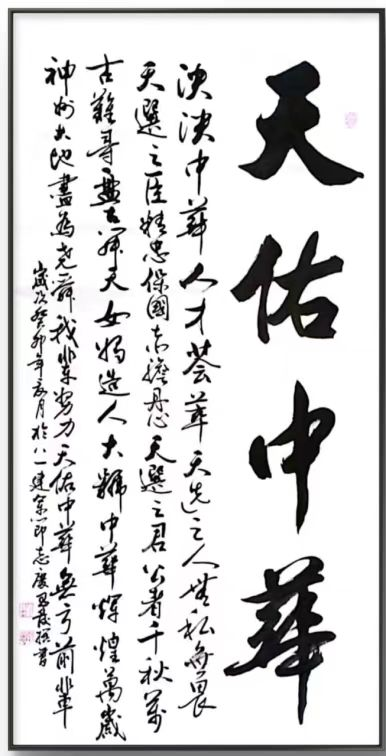 天佑中華
泱泱中華人才荟華天选之人無私無畏
天選之臣精忠保國赤膽丹心天選之君公者千秋萬
古難尋盤古開天女媧造人大中華輝煌萬歲
神州大地盡為堯舜我輩努力天佑中華無亏前輩
歲次癸卯年夏月於八一建軍節志慶撰書